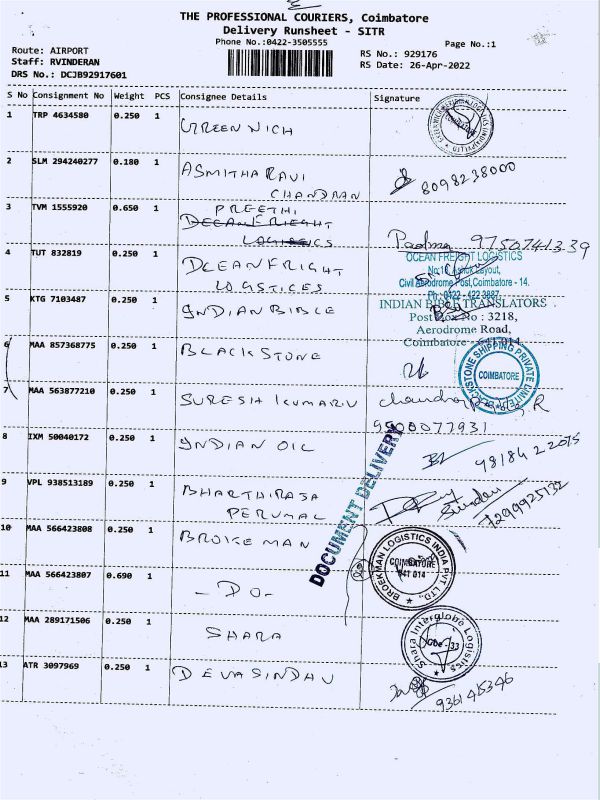 THE PROFESSIONAL COURIERS, Coimbatore
Delivery Runsheet - SITR
Phone No.:0422-3505555
Page No.:1
Route: AIRPORT
Staff: RVINDERAN
DRS No.: DCJB92917601
RS No.: 929176
RS Date: 26-Apr-2022
S No Consignment No Weight PCS Consignee Details Signature
1 TRP 4634580 0.250 1 GREENWICH
2 SLM 294240277 0.180 1 ASMITHA RAVI
CHANDRAN
8098238000
3 TVM 1555920 0.650 1 PREETHI
OCEANFRIEGHT
LOGISTICS
Padma 9750741339
4 TUT 832819 0.250 1 OCEANFRIGHT
LOGISTICES
OCEAN FREIGHT LOGISTICS
Civil Aerodrome Post,Coimbatore - 14.
5 KTG 7103487 0.250 1 INDIAN BIBLE
INDIAN BIBLE TRANSLATORS
Post Box No : 3218,
Aerodrome Road,
Coimbatore - 641 014
6 MAA 857368775 0.250 1 BLACKSTONE
BLACKSTONE SHIPPING PRIVATE LIMITED
COIMBATORE
7 MAA 563877210 0.250 1 SURESH KUMARV
9500077931
8 IXM 50040172 0.250 1 INDIAN OIL
98184 22075
9 VPL 938513189 0.250 1 BHARTHIRAJA
PERUMAL
7299925732
DOCUMENT DELIVERY
10 MAA 566423808 0.250 1 BROKEMAN
BROEKMAN LOGISTICS INDIA PVT. LTD.
COIMBATORE
641 014
11 MAA 566423807 0.690 1 - DO -
12 MAA 289171506 0.250 1 SHARA
Shara Interglobe Logistics
13 ATR 3097969 0.250 1 DEVASINDHU
936145346